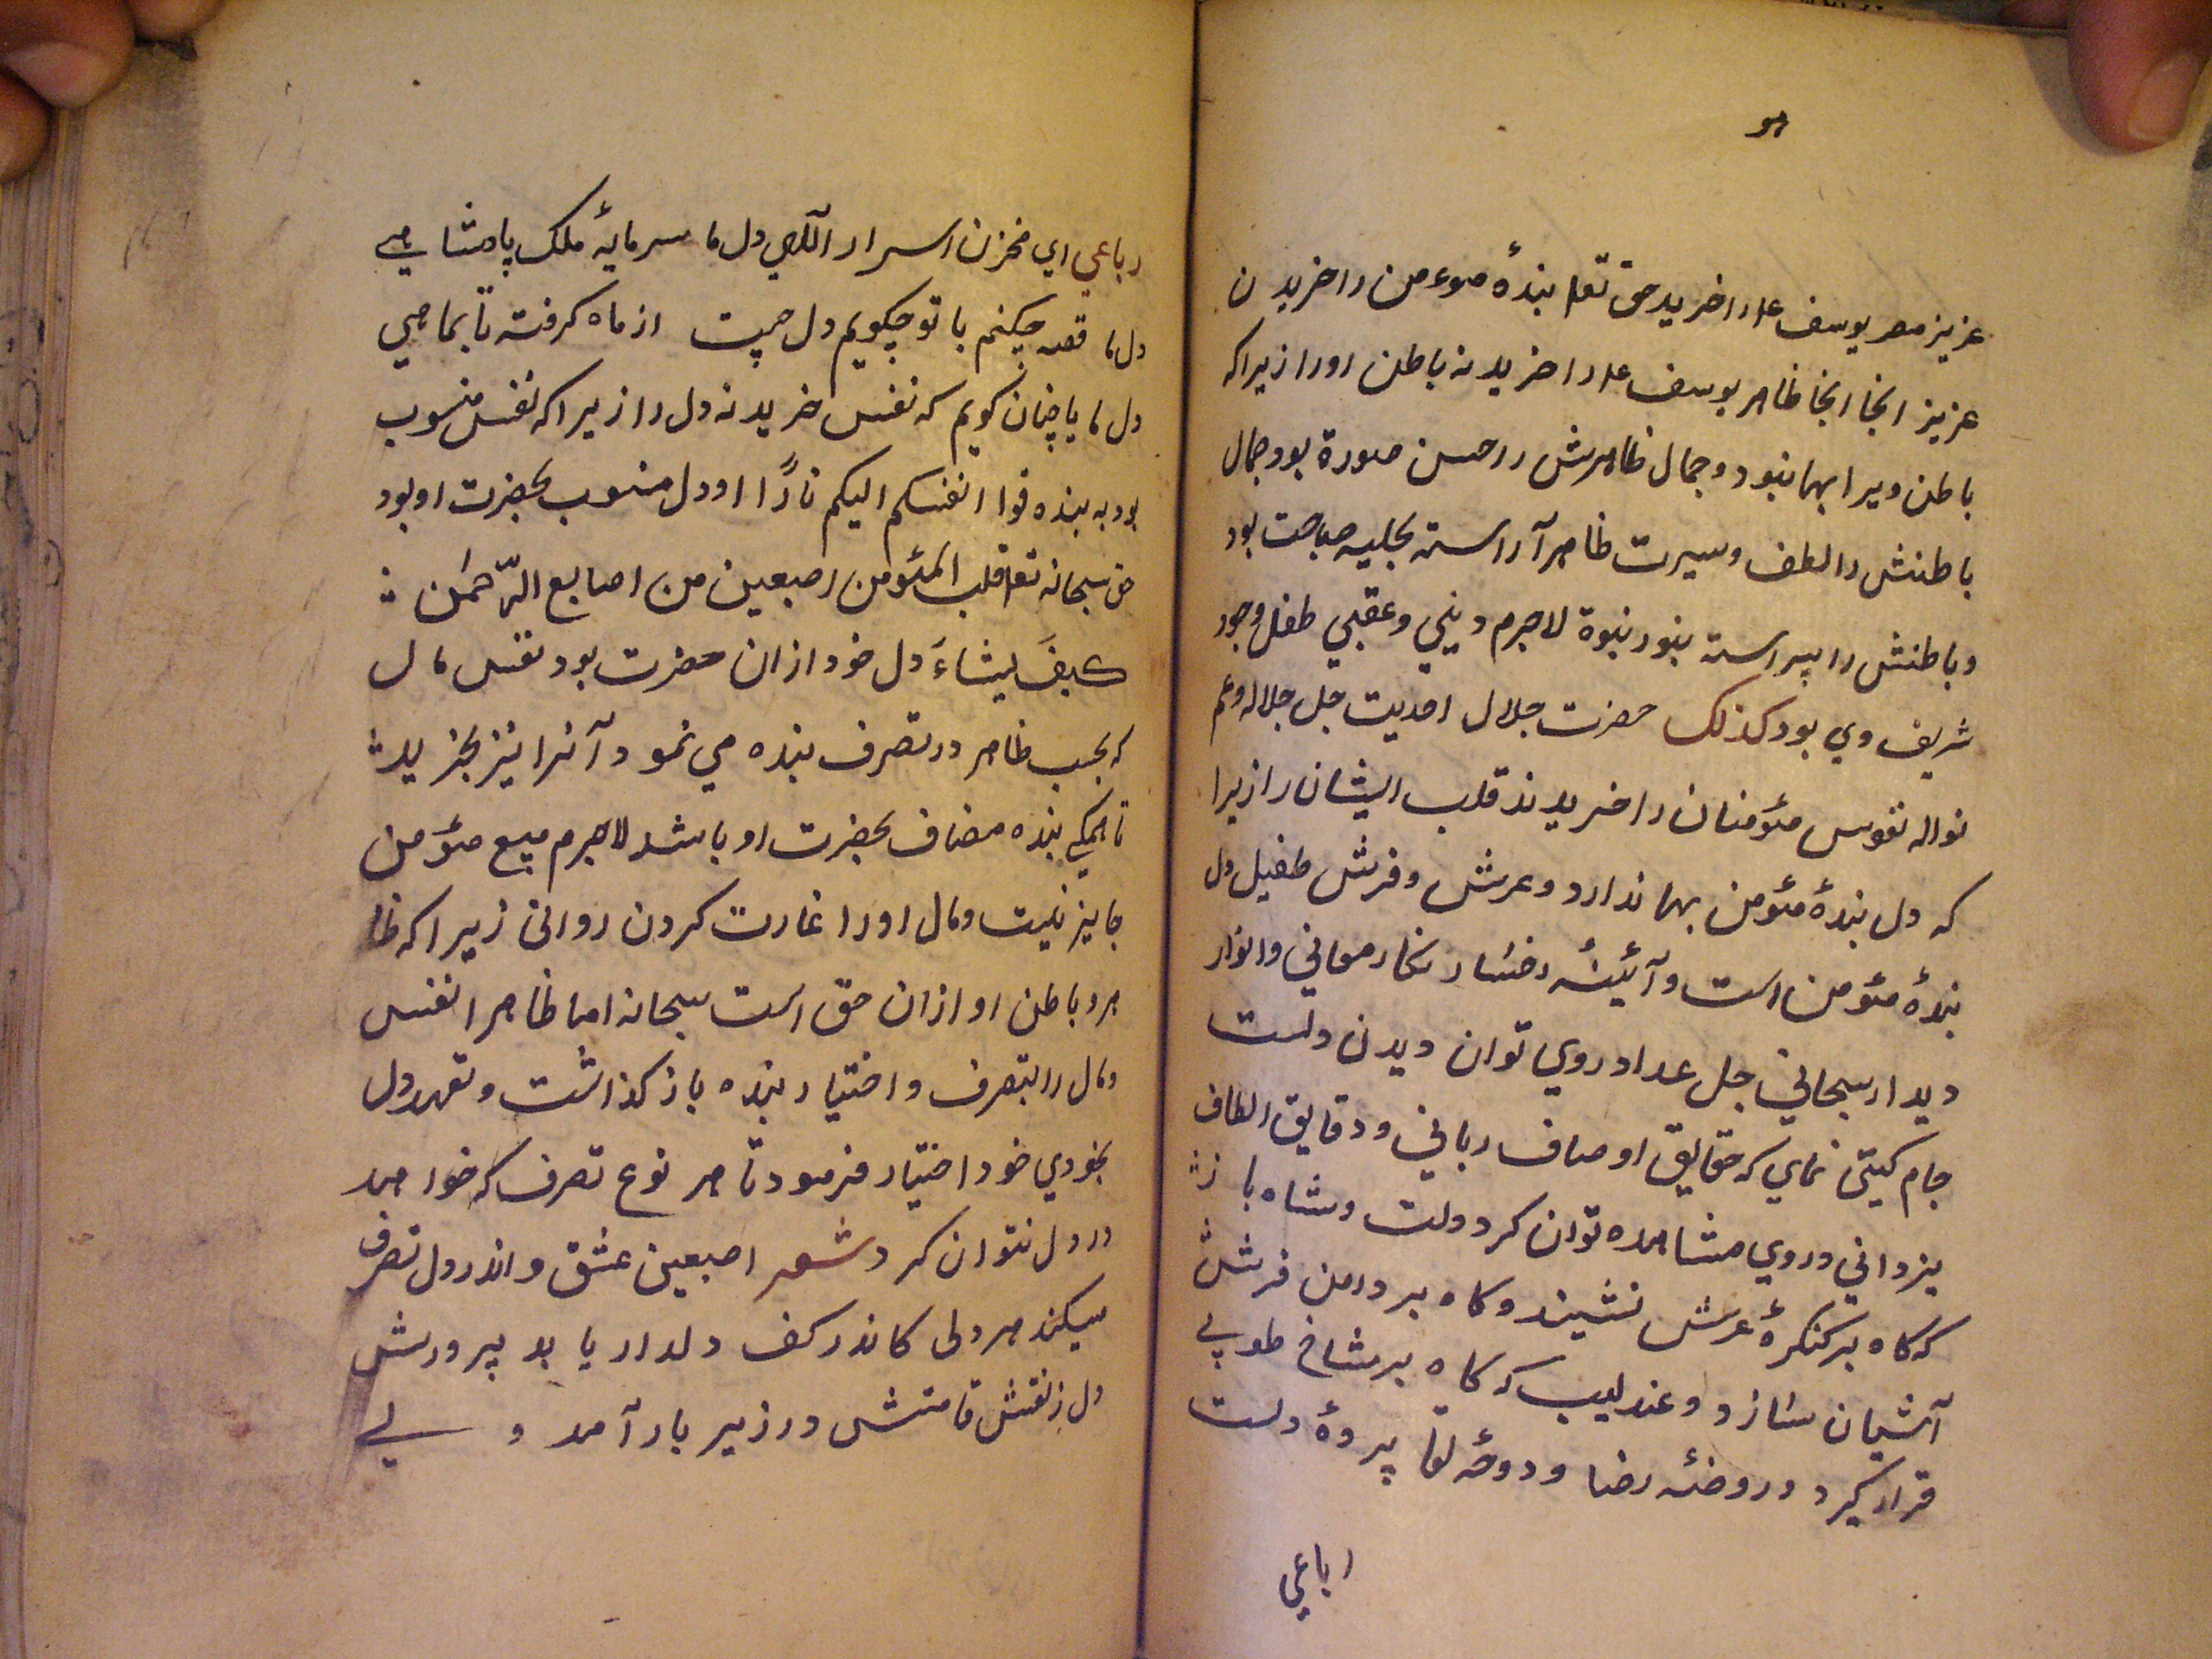 هو
عزیز مصر یوسف ع‍م را خرید حق تعا بندهٔ موءمن را خریدن
عزیز انجا ظاهر یوسف ع‍م را خرید نه باطن اورا زیراکه
باطن ویرا بها نبود وجمال ظاهرش در حسن صورة بود جمال
باطنش را لطف وسیرت ظاهر آراسته بحلیه صباحت بود
وباطنش را پیراسته بنور نبوة لاجرم دینی وعقبی طفل وجود
شریف وی بود کذلک حضرت جلال احدیت جل جلاله وعم
نواله نفوس مئومنان را خرید نه قلب ایشان را زیرا
که دل بندهٔ مئومن بها ندارد وعرش وفرش طفیل دل
بندهٔ مئومن است وآیینهٔ رخسار نکار معانی وانوار
دیدار سبحانی جل عداد روی توان دیدن دلست
جام کیتی نمای که حقایق اوصاف ربانی ودقایق الطاف
یزدانی دروی مشاهده توان کرد دلست وشاه باز
که کاه بر کنکرهٔ عرش نشیند وکاه بر دامن فرش
آشیان سازد وعندلیب که کاه بر شاخ طوبی
قرار کیرد در روضهٔ رضا ودوحهٔ لقا پردهٔ دلست
رباعی
رباعی ای مخزن اسرار آلهی دل ما سرمایهٔ ملک پادشاهی
دل ما قصه چکنم با تو چکویم دل چیست از ماه کرفته تا بماهی
دل ما یا چنان کویم که نفس خرید نه دل را زیرا که نفس منسوب
بود به بنده قوا انفسکم الیکم نارًا و دل منسوب بحضرت او بود
حق سبحانه تعا قلب المئومن اصبعین من اصابع الرّحمٰن
کیفَ یشاءَ دل خود ازان حضرت بود نفس مال
که بحسب ظاهر در تصرف بنده می نمود آنرا نیز بخرید
تا همکی بنده مضاف بحضرت او باشد لاجرم بیع مئومن
جایز نیست ومال اورا غارت کردن روانی زیرا که ظا
هر وباطن او ازان حق است سبحانه اما ظاهرا نفس
ومال را بتصرف واختیار بنده باز کذاشت وتعهد دل
بخودی خود اختیار فرمود تا هر نوع تصرف که خواهد
در دل نتوان کرد شعر اصبعین عشق واندر دل تصرف
میکند هر دلی کاندر کف دلدار یابد پرورش
دل ز نقش قامتش در زیر بار آمد ولی